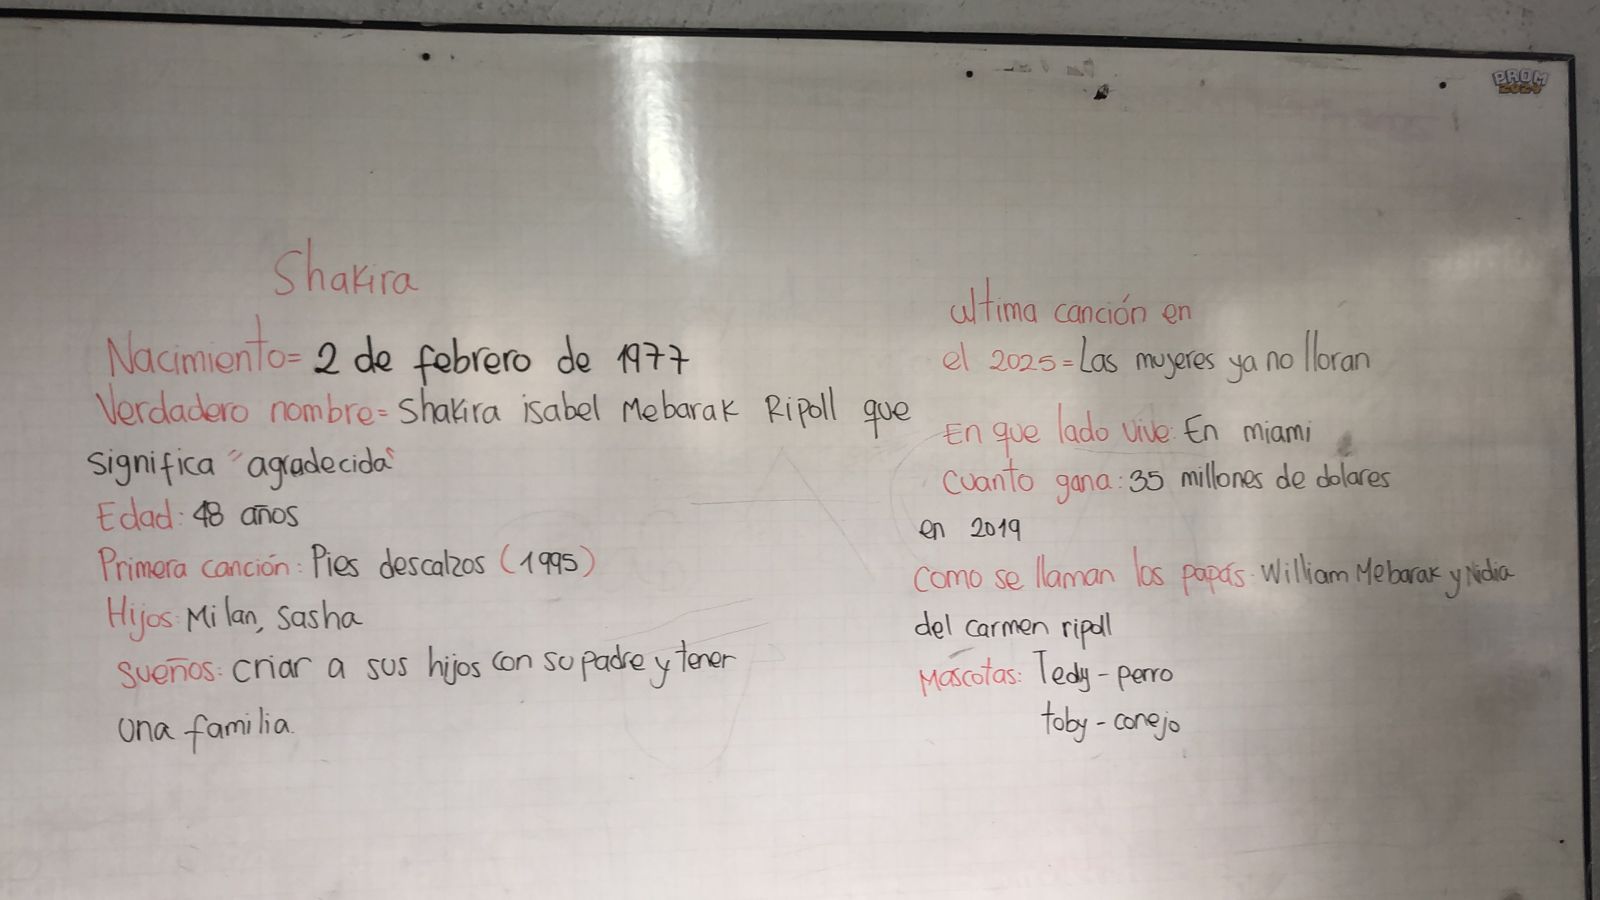 Shakira
Nacimiento= 2 de febrero de 1977
Verdadero nombre= Shakira isabel Mebarak Ripoll que
significa "agradecida"
Edad: 48 años
Primera canción: Pies descalzos (1995)
Hijos: Milan, Sasha
Sueños: criar a sus hijos con su padre y tener
una familia.
ultima canción en
el 2025= Las mujeres ya no lloran
En que lado vive: En miami
Cuanto gana: 35 millones de dolares
en 2019
Como se llaman los papás: William Mebarak y Nidia
del carmen ripoll
Mascotas: Tedy - perro
toby - conejo
PROM
2024